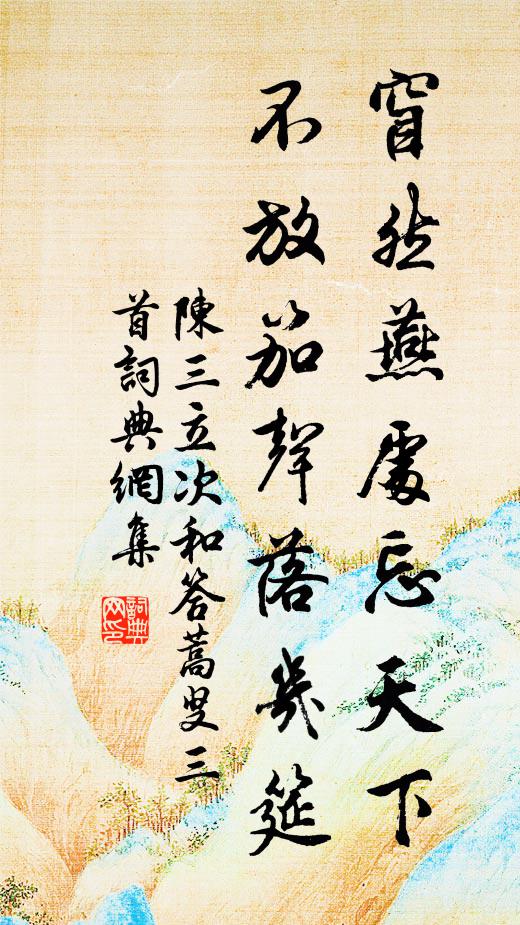 窅然燕處忘天下
不放笳聲落几筵
陳三立次和答蒿叟三
首詞典網集
詞典
网印